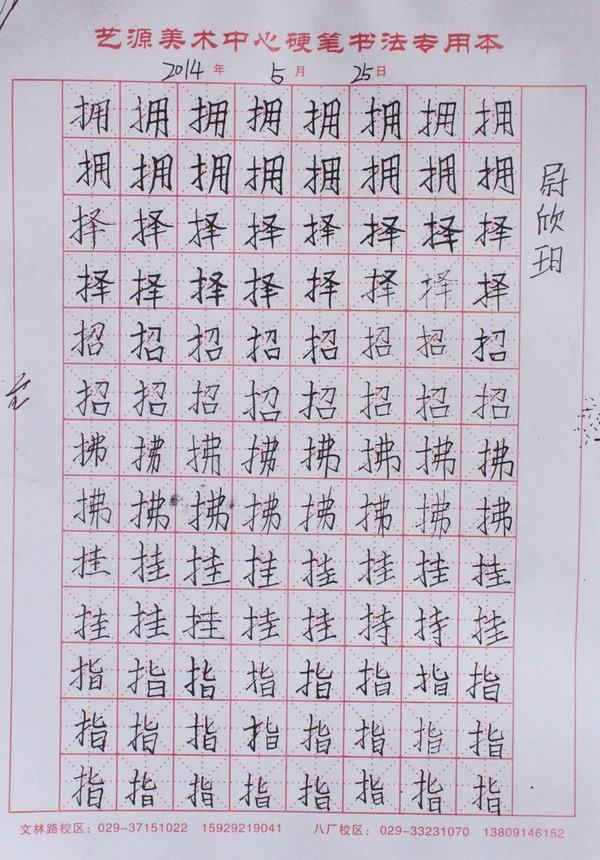 艺源美术中心硬笔书法专用本
2014年 5月 25日
拥拥拥拥拥拥拥拥
拥拥拥拥拥拥拥拥
择择择择择择择择
择择择择择择择择
招招招招招招招招
招招招招招招招招
拂拂拂拂拂拂拂拂
拂拂拂拂拂拂拂拂
挂挂挂挂挂挂挂挂
挂挂挂挂挂持持挂
指指指指指指指指
指指指指指指指指
指指指指指指指指
尉欣玥
文林路校区：029-37151022 15929219041 八厂校区：029-33231070 13809146152